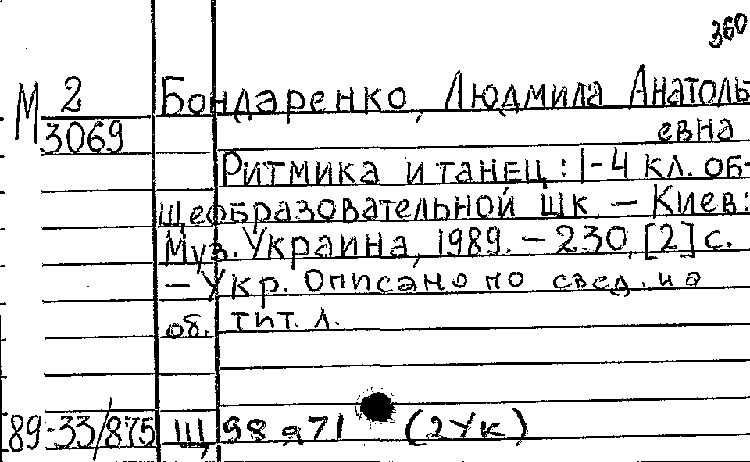 360
М 2 Бондаренко, Людмила Анатоль
3069 евна
Ритмика и танец: 1-4 кл. об-
щеобразовательной шк — Киев:
Муз. Украина, 1989. – 230, [2] с.
— Укр. Описано по свед. на
об. тит. л.
89-33/875 Щ 98 я 71 (2Ук)